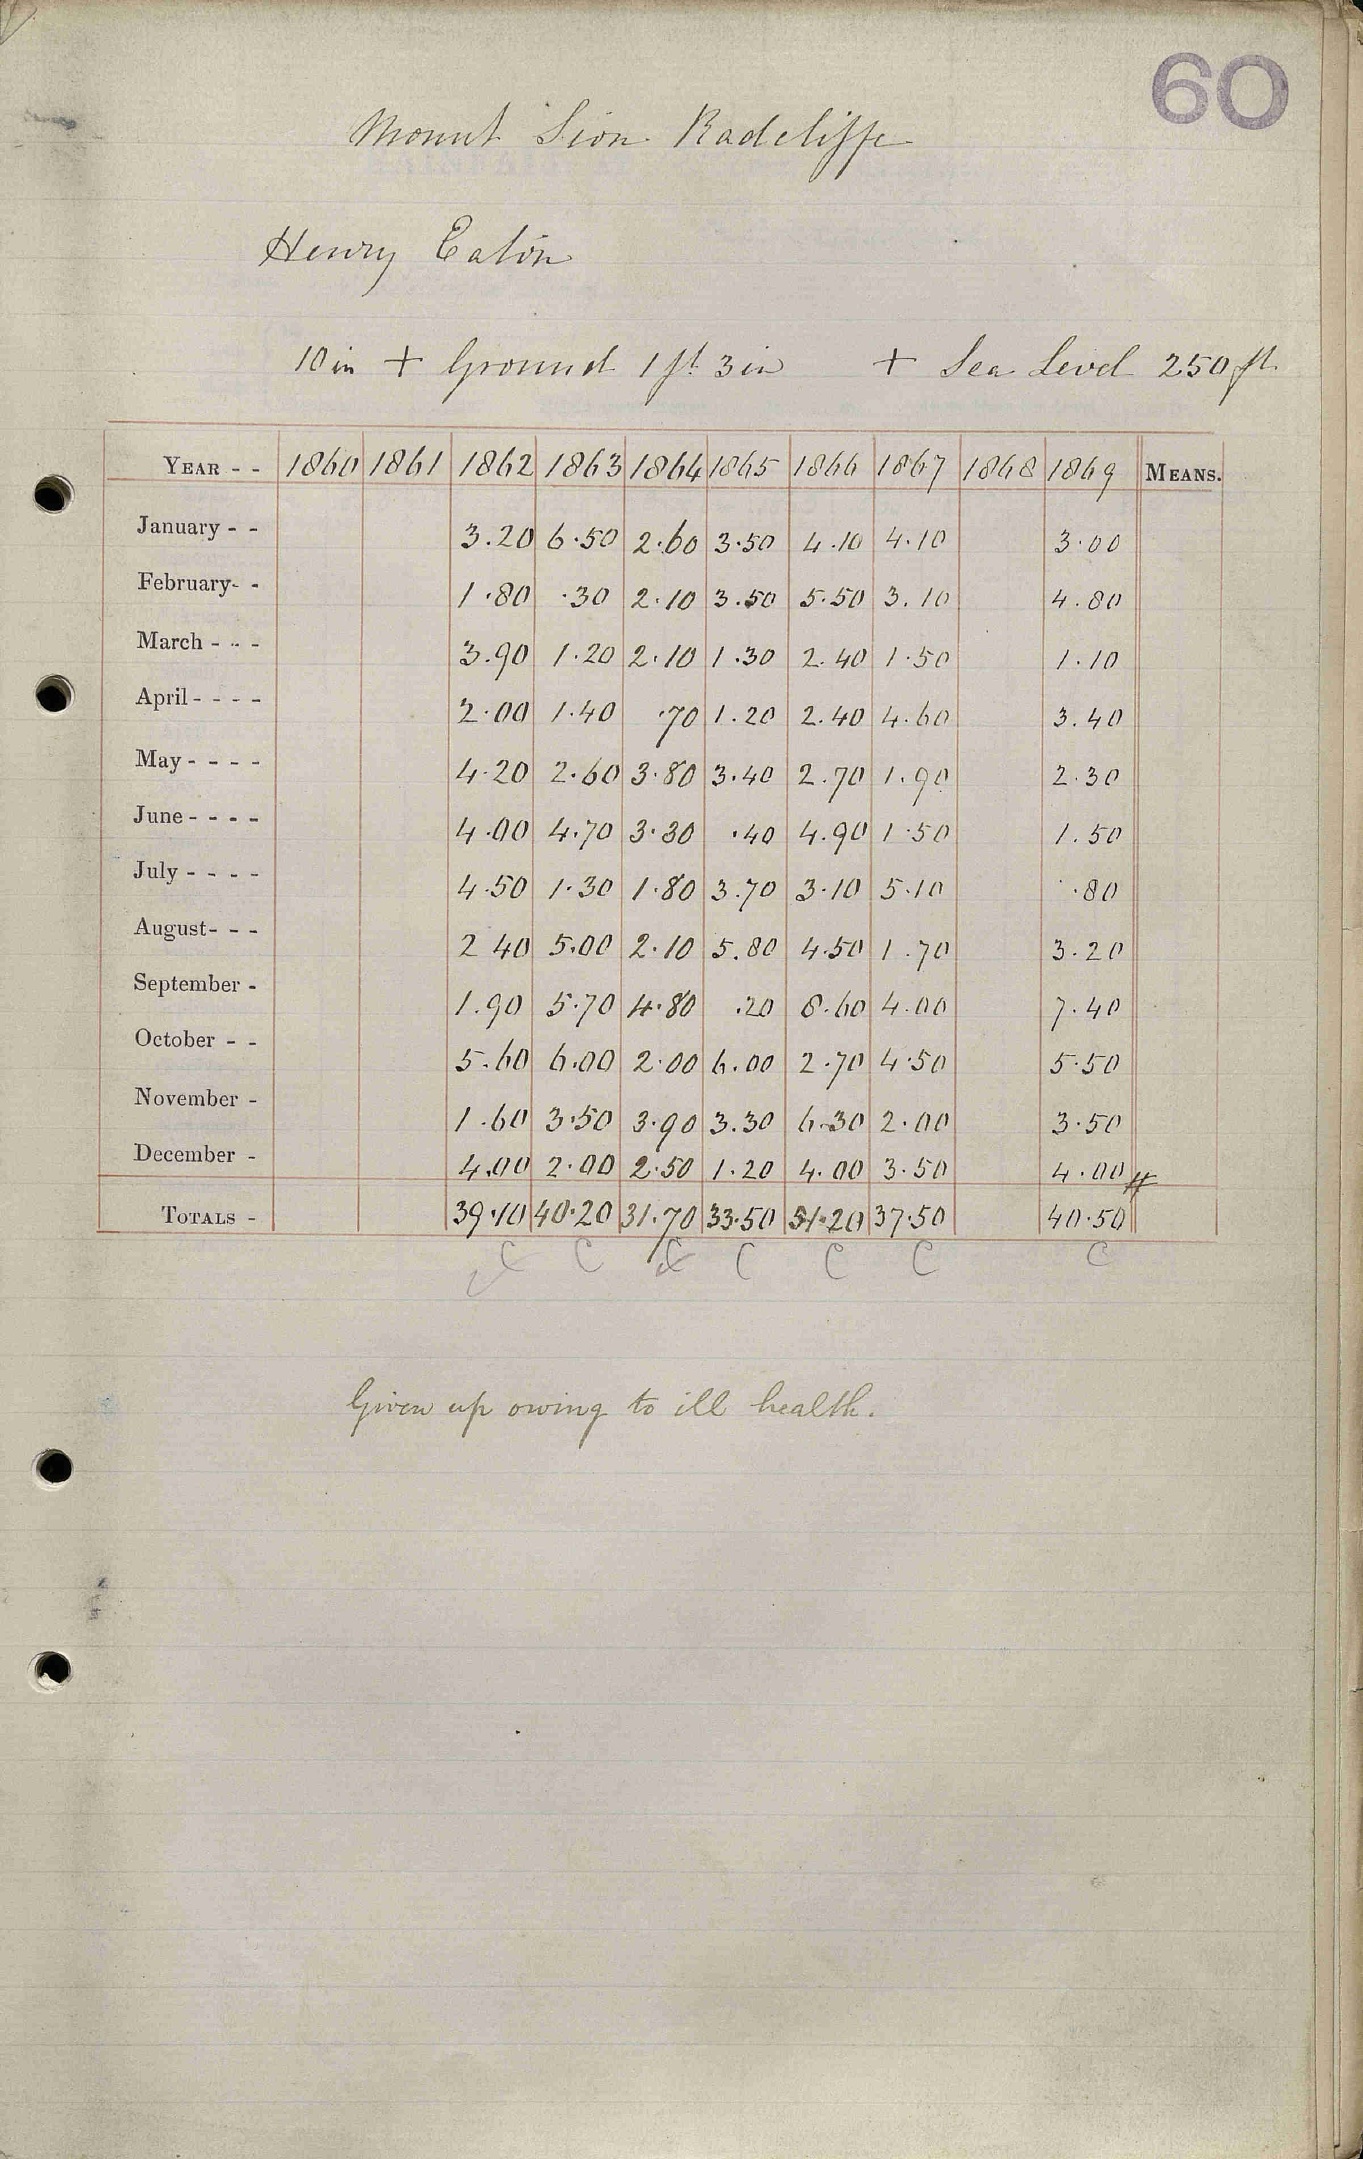 60
Mount Sion Radcliffe
Henry Eaton
10 in + Ground 1 ft 3 in + Sea Level 250 ft
YEAR - - 1860 1861 1862 1863 1864 1865 1866 1867 1868 1869 MEANS.
January - - 3.20 6.50 2.60 3.50 4.10 4.10 3.00
February- - 1.80 .30 2.10 3.50 5.50 3.10 4.80
March - - - 3.90 1.20 2.10 1.30 2.40 1.50 1.10
April - - - - 2.00 1.40 .70 1.20 2.40 4.60 3.40
May - - - - 4.20 2.60 3.80 3.40 2.70 1.90 2.30
June - - - - 4.00 4.70 3.30 .40 4.90 1.50 1.50
July - - - - 4.50 1.30 1.80 3.70 3.10 5.10 .80
August- - - 2 40 5.00 2.10 5.80 4.50 1.70 3.20
September - 1.90 5.70 4.80 .20 8.60 4.00 7.40
October - - 5.60 6.00 2.00 6.00 2.70 4.50 5.50
November - 1.60 3.50 3.90 3.30 6.30 2.00 3.50
December - 4.00 2.00 2.50 1.20 4.00 3.50 4.00 #
TOTALS - 39.10 40.20 31.70 33.50 51.20 37.50 40.50
C C C C C C C
Given up owing to ill health.